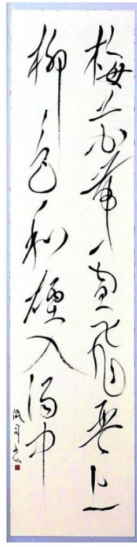 梅花帶雪飛琴上
柳色和煙入酒中